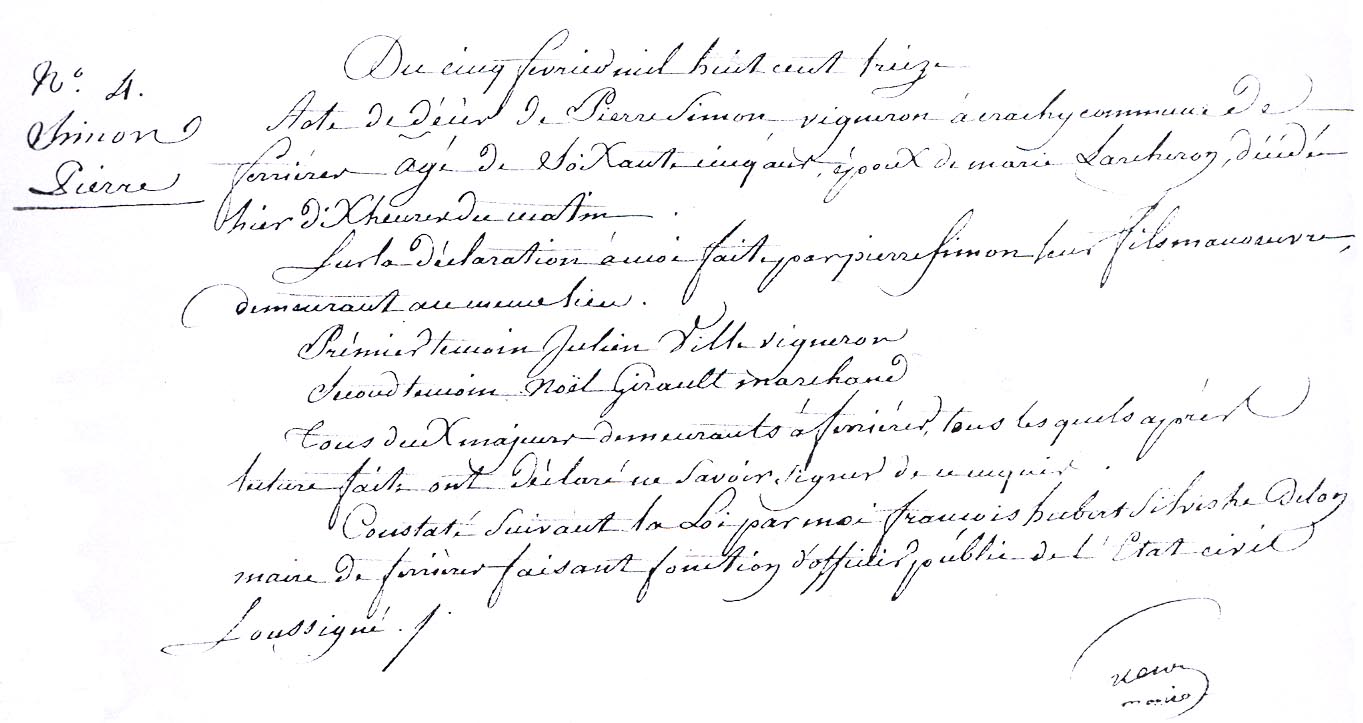 N.º 4.
Simon
Pierre
Du cinq fevrier mil huit cent treize
Acte de décès de Pierre Simon vigneron à crachy commune de
ferriéres agé de Soixante cinq ans, époux de marie Larcheron, décédé
hier diX heures du matin.
Sur la déclaration à moi faite par pierre Simon leur fils manoeuvre,
demeurant au meme lieu.
Prémier temoin Julien Ville vigneron
Second temoin Noël Girault marchand
Tous deuX majeurs demeurants à ferriéres, tous lesquels aprés
lecture faite ont déclaré ne savoir signer de ce enquis.
Constaté suivant la Loi par moi françois hubert Silvestre Delon
maire de ferriéres faisant fonction d'officier public de l'Etat civil
Soussigné.
maire